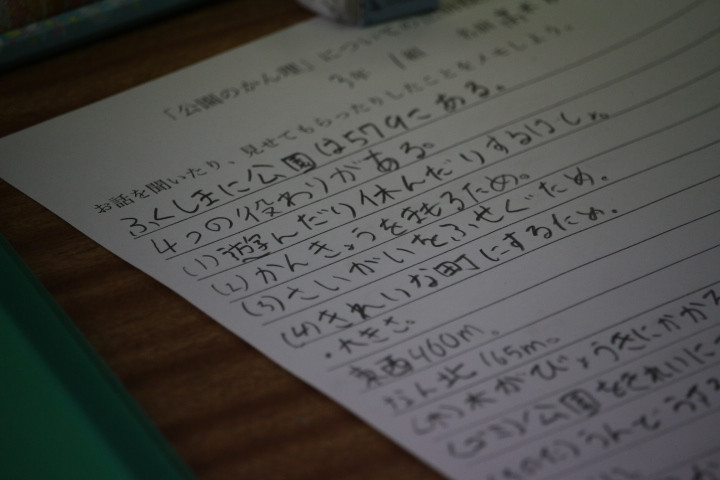 「公園のかん理」についての
3年 1組 名前
お話を聞いたり、見せてもらったりしたことをメモしよう。
ふくしまに公園は579こある。
4つの役わりがある。
(1)遊んだり休んだりするばしょ。
(2)かんきょうを守るため。
(3)さいがいをふせぐため。
(4)きれいな町にするため。
・大きさ。
東西460m。
なん北165m。
(木)木がびょうきにかかる
(ゴミ)公園をきれいに
うんでう